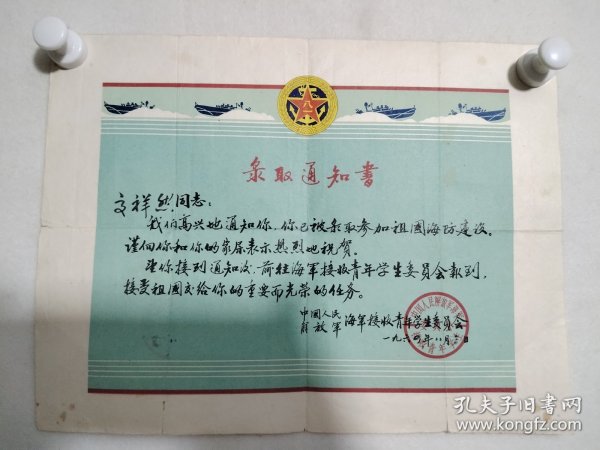 八一
录取通知书
文祥然同志：
我们高兴地通知你，你已被录取参加祖國海防建设。
谨向你和你的家属表示热烈地祝贺。
望你接到通知后，前往海军接收青年学生委員会報到，
接受祖國交给你的重要而光荣的任务。
中國人民
解放軍 海军接收青年学生委員会
一九六四年八月 日
孔夫子旧書网
www.kongfz.com